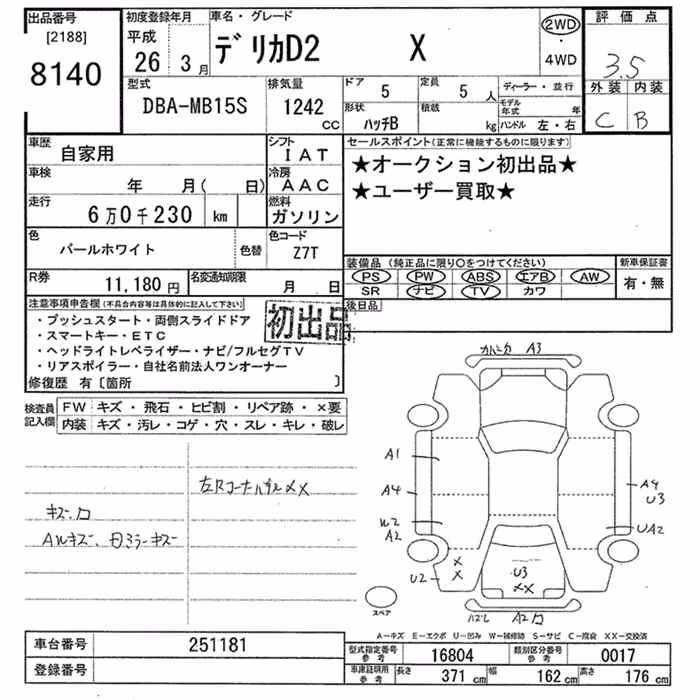 出品番号
[2188]
8140
初度登録年月
平成
26 3月
車名・グレード
デリカD2 X
2WD
・
4WD
評価点
3.5
外装 内装
C B
型式
DBA-MB15S
排気量
1242
cc
ドア 5
定員 5 人
形状 ハッチB
積載 kg
ディーラー・並行
モデル年式 年
ハンドル 左・右
車歴 自家用
シフト IAT
車検 年 月( 日)
冷房 AAC
走行 6万0千230 km
燃料 ガソリン
色 パールホワイト
色替
色コード Z7T
R券 11,180円
名変通知期限 月 日
セールスポイント(正常に機能するものに限ります)
★オークション初出品★
★ユーザー買取★
装備品(純正品に限り○をつけてください)
PS PW ABS エアB AW
SR ナビ TV カワ
新車保証書
有・無
後日品
注意事項申告欄(不具合内容等は具体的に記入して下さい)
・プッシュスタート・両側スライドドア
・スマートキー・ETC
・ヘッドライトレベライザー・ナビ/フルセグTV
・リアスポイラー・自社名前法人ワンオーナー
修復歴 有〔箇所 〕
初出品
検査員記入欄
FW キズ・飛石・ヒビ割・リペア跡・×要
内装 キズ・汚レ・コゲ・穴・スレ・キレ・破レ
左Rコーナーパネル××
A3
A1
A4
A2
U2
A4
U3
UA2
U3
××
×
×
スペア
A2
A-キズ E-エクボ U-凹み W-補修跡 S-サビ C-腐食 XX-交換済
車台番号 251181
登録番号
型式指定番号参考 16804
類別区分番号参考 0017
車庫証明用参考 長さ 371 cm 幅 162 cm 高さ 176 cm